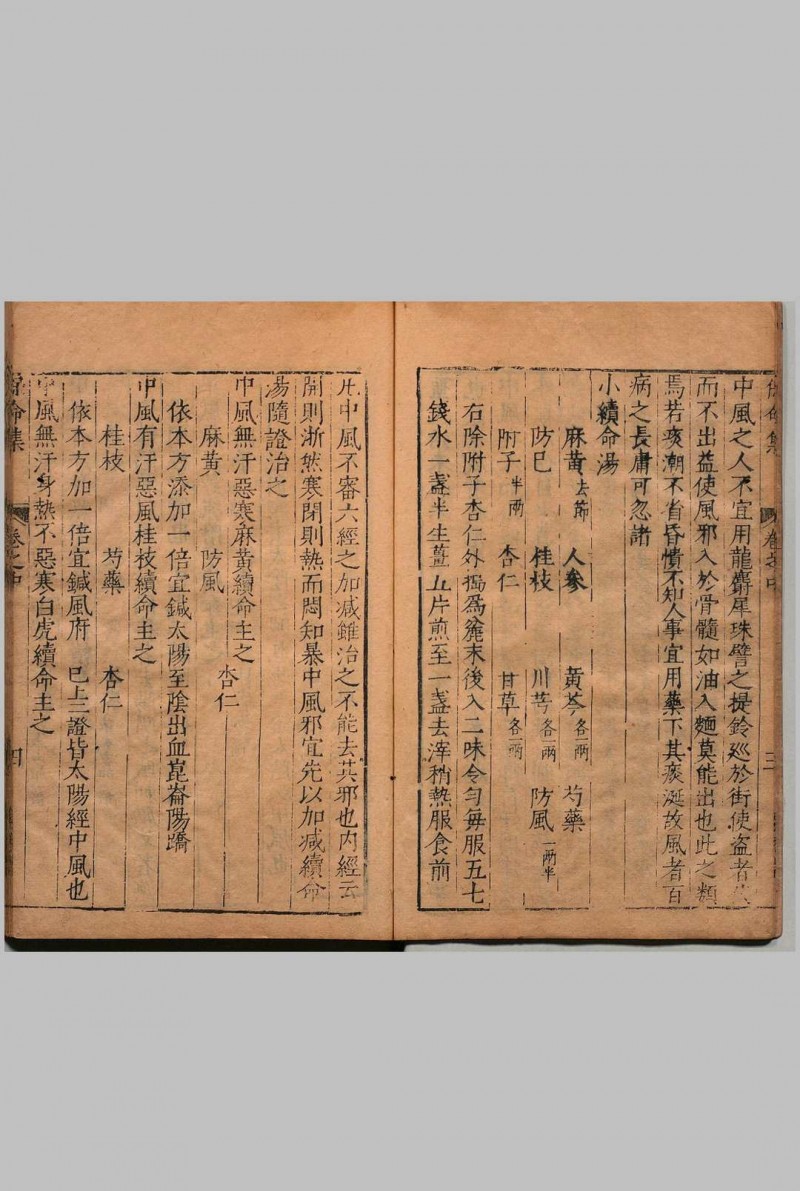 中風之人不宜用龍麝犀珠譬之提鈴巡於街使盜者
而不出益使風邪入於骨髓如油入麵莫能出也此之類
焉若痰潮不省昏憒不知人事宜用藥下其痰涎故風者百
病之長庸可忽諸
小續命湯
麻黃去節 人參 黃芩各一兩 芍藥
防巳 桂枝 川芎各一兩 防風一兩半
附子半兩 杏仁 甘草各一兩
右除附子杏仁外搗爲麄末後入二味令勻每服五七
錢水一盞半生薑五片煎至一盞去滓稍熱服食前
凡中風不審六經之加減雖治之不能去其邪也内經云
開則淅然寒閉則熱而悶知暴中風邪宜先以加減續命
湯隨證治之
中風無汗惡寒麻黃續命主之
麻黃 防風 杏仁
依本方添加一倍宜鍼太陽至陰出血崑崙陽蹻
中風有汗惡風桂枝續命主之
桂枝 芍藥 杏仁
依本方加一倍宜鍼風府 巳上二證皆太陽經中風也
中風無汗身熱不惡寒白虎續命主之
命集 卷之中 四